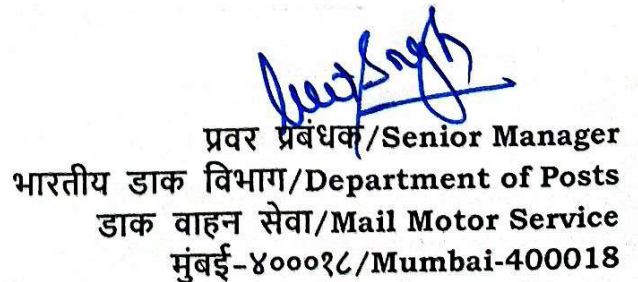 Singh
प्रवर प्रबंधक/Senior Manager
भारतीय डाक विभाग/Department of Posts
डाक वाहन सेवा/Mail Motor Service
मुंबई-४०००१८/Mumbai-400018